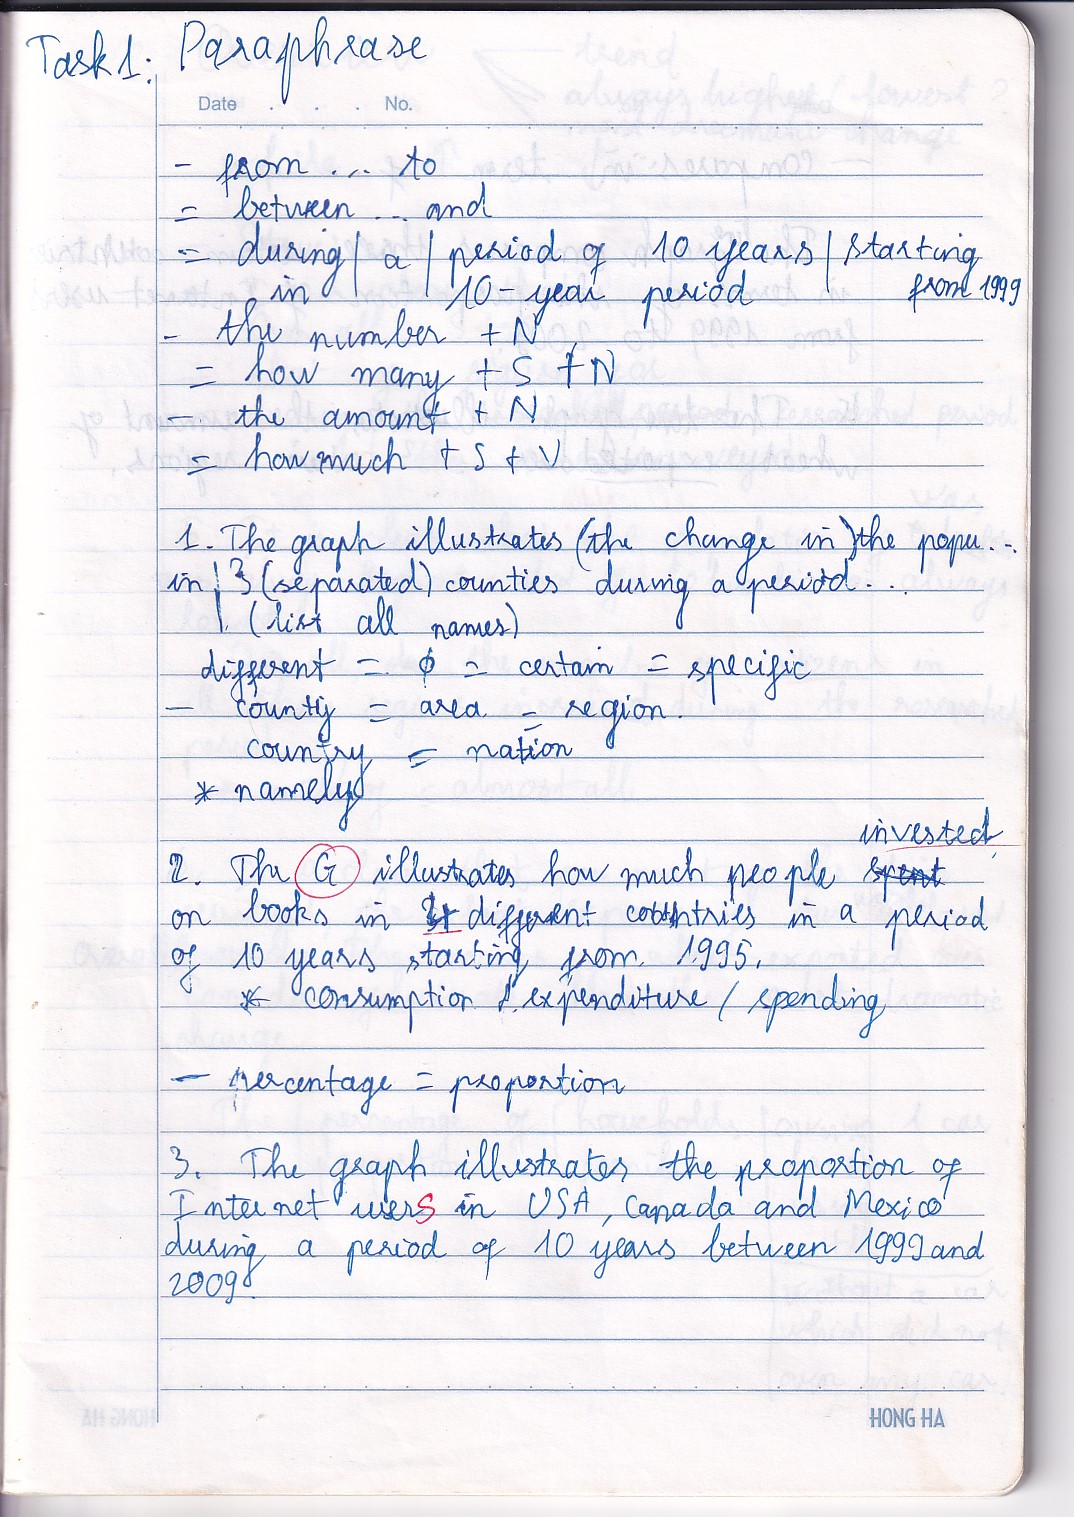 Task 1: Paraphrase
Date . . . No.
- from ... to
= between ... and
= during | a | period of 10 years | starting
in 10-year period from 1999
- the number + N
= how many + S + N
- the amount + N
= how much + S + V
1. The graph illustrates (the change in) the popu...
in | 3 (separated) counties during a period...
(list all names)
different = ϕ = certain = specific
- county = area = region.
country = nation
* namely
invested
2. The G illustrates how much people spent
on books in different countries in a period
of 10 years starting from 1995.
* consumption / expenditure / spending
- percentage = proportion
3. The graph illustrates the proportion of
Internet users in USA, Canada and Mexico
during a period of 10 years between 1999 and
2009.
HONG HA